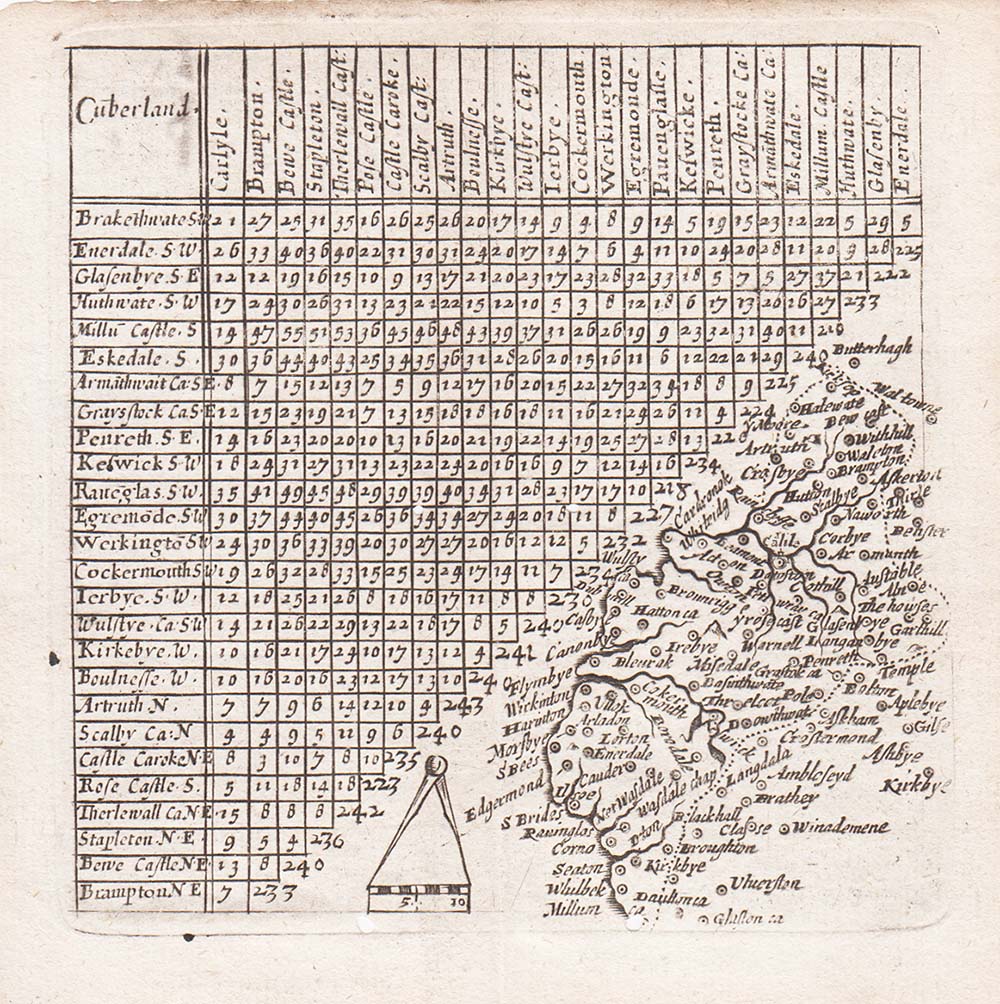 Cuberland.
Carlyle.
Brampton.
Bewe Castle.
Stapleton.
Therlewall Cast:
Castle Caroke.
Scalby Cast:
Artruth.
Boulnesse.
Kirkbye.
Wulstye Cast:
Ierbye.
Cockermouth.
Werkington
Egremonde.
Pauenglasse.
Keswicke.
Penreth.
Graystocke Ca:
Armathwate Ca
Eskedale.
Millum Castle
Huthwate.
Glasenby.
Enerdale.
Brakethwate S W 21 27 25 31 35 16 26 25 26 20 17 14 9 4 8 9 14 5 19 15 23 12 22 5 29 5
Enerdale. S. W. 26 33 40 36 40 22 31 30 31 24 20 17 14 7 6 4 11 10 24 20 28 11 20 9 28 225
Glasenbye. S E 12 12 19 16 15 10 9 13 17 21 20 23 17 23 28 32 33 18 5 7 5 27 37 21 222
Huthwate. S. W 17 24 30 26 31 13 23 21 22 15 12 10 5 3 8 12 18 6 17 13 20 16 27 233
Millū Castle. S 14 47 55 51 53 36 45 46 48 43 39 37 31 26 26 19 9 23 32 31 40 11 210
Eskedale. S. 30 36 44 40 43 25 34 35 36 31 28 26 20 15 16 11 6 12 22 21 29 240
Armāthwait Ca: S E 8 7 15 12 13 7 5 9 12 17 16 20 15 22 27 32 34 18 8 9 225
Graysstock Ca S E 12 15 23 19 21 7 13 15 18 18 16 18 11 16 21 24 26 11 4 224
Penreth. S E. 14 16 23 20 20 10 13 16 20 21 19 22 14 19 25 27 28 13 228
Keswick S W 18 24 31 27 31 13 23 22 24 20 16 16 9 7 12 14 16 234
Raueglas. S. W. 35 41 49 45 48 29 39 39 40 34 31 28 23 17 17 10 218
Egremōde. S W 30 37 44 40 45 26 36 34 34 27 24 20 18 11 8 227
Werkingtō S W 24 30 36 33 39 20 30 27 27 20 16 12 12 5 232
Cockermouth S W 19 26 32 28 33 15 25 23 24 17 14 11 7 234
Ierbye. S. W. 12 18 25 21 26 8 18 16 17 11 8 8 230
Wulstye. Ca: S W 14 21 26 22 29 13 22 18 17 8 5 240
Kirkebye. W. 10 16 21 17 24 10 17 13 12 4 241
Boulnesse. W. 10 16 20 16 23 12 17 13 10 240
Artruth N. 7 7 9 6 14 12 10 4 243
Scalby Ca: N 4 4 9 5 11 9 6 240
Castle Caroke N E 8 3 10 7 8 10 235
Rose Castle. S. 5 11 18 14 18 223
Therlewall Ca. N E 15 8 8 8 242
Stapleton. N. E 9 5 4 236
Bewe Castle N E 13 8 240
Brampton N E 7 233
5 10
Butterhagh
Waltowne
Halewate
Bew cast
Moore
Artruth
Withhill
Walton
Brampton
Crosbye
Askerton
Hutton
Scalbye
Naworth
Cardronok
Whitridg
Corbye
Cothill
Austable
The howses
Garthill
Wulsty
Brownrigg
Hatton ca
Yrosecast
Canonby
Bleurak
Irebye
Warnell
Penreth
Temple
Flymbye
Wirkinton
Harinton
Morsbye
S Bees
Edgermond
Basinthwate
Bolton
Aplebye
Arladon
Lorton
Enerdale
Cokermouth
Borodal
Askham
Crostermond
Ashbye
Kirkbye
Cauder
Netwasdale
Wasdale chap
Langdala
Ambleseyd
Brathey
S Brides
Raunglos
Blackhall
Winademene
Corno
Broughton
Seaton
Kirkbye
Whilbek
Millum ca
Ulverston
Glaston ca